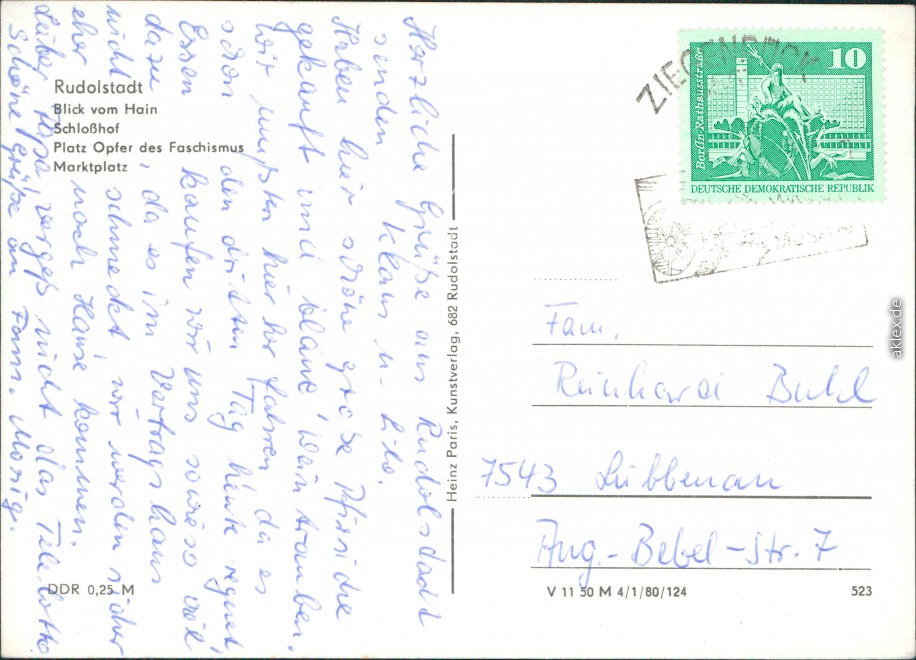 Rudolstadt
Blick vom Hain
Schloßhof
Platz Opfer des Faschismus
Marktplatz
Herzliche Grüße aus Rudolstadt
senden Klaus u.
Haben hier schöne große Pfirsiche
gekauft und blaue Weintrauben.
Wir mußten hier her fahren da es
schon den dritten Tag heute regnet,
Essen kaufen wir uns sowieso viel
dazu, da es im Vertragshaus
nicht schmeckt, wir werden sicher
eher nach Hause kommen.
Lieber Papa! vergeß nicht das Telelotto.
Schöne Grüße an Fam. Mosig.
DDR 0,25 M
Heinz Paris, Kunstverlag, 682 Rudolstadt
ZIEGENRÜCK
Berlin-Rathausstraße
10
DEUTSCHE DEMOKRATISCHE REPUBLIK
MUSEUM
Fam.
Reinhard Buhl
7543 Lübbenau
Aug.-Bebel-Str. 7
V 11 50 M 4/1/80/124
523
aklex.de